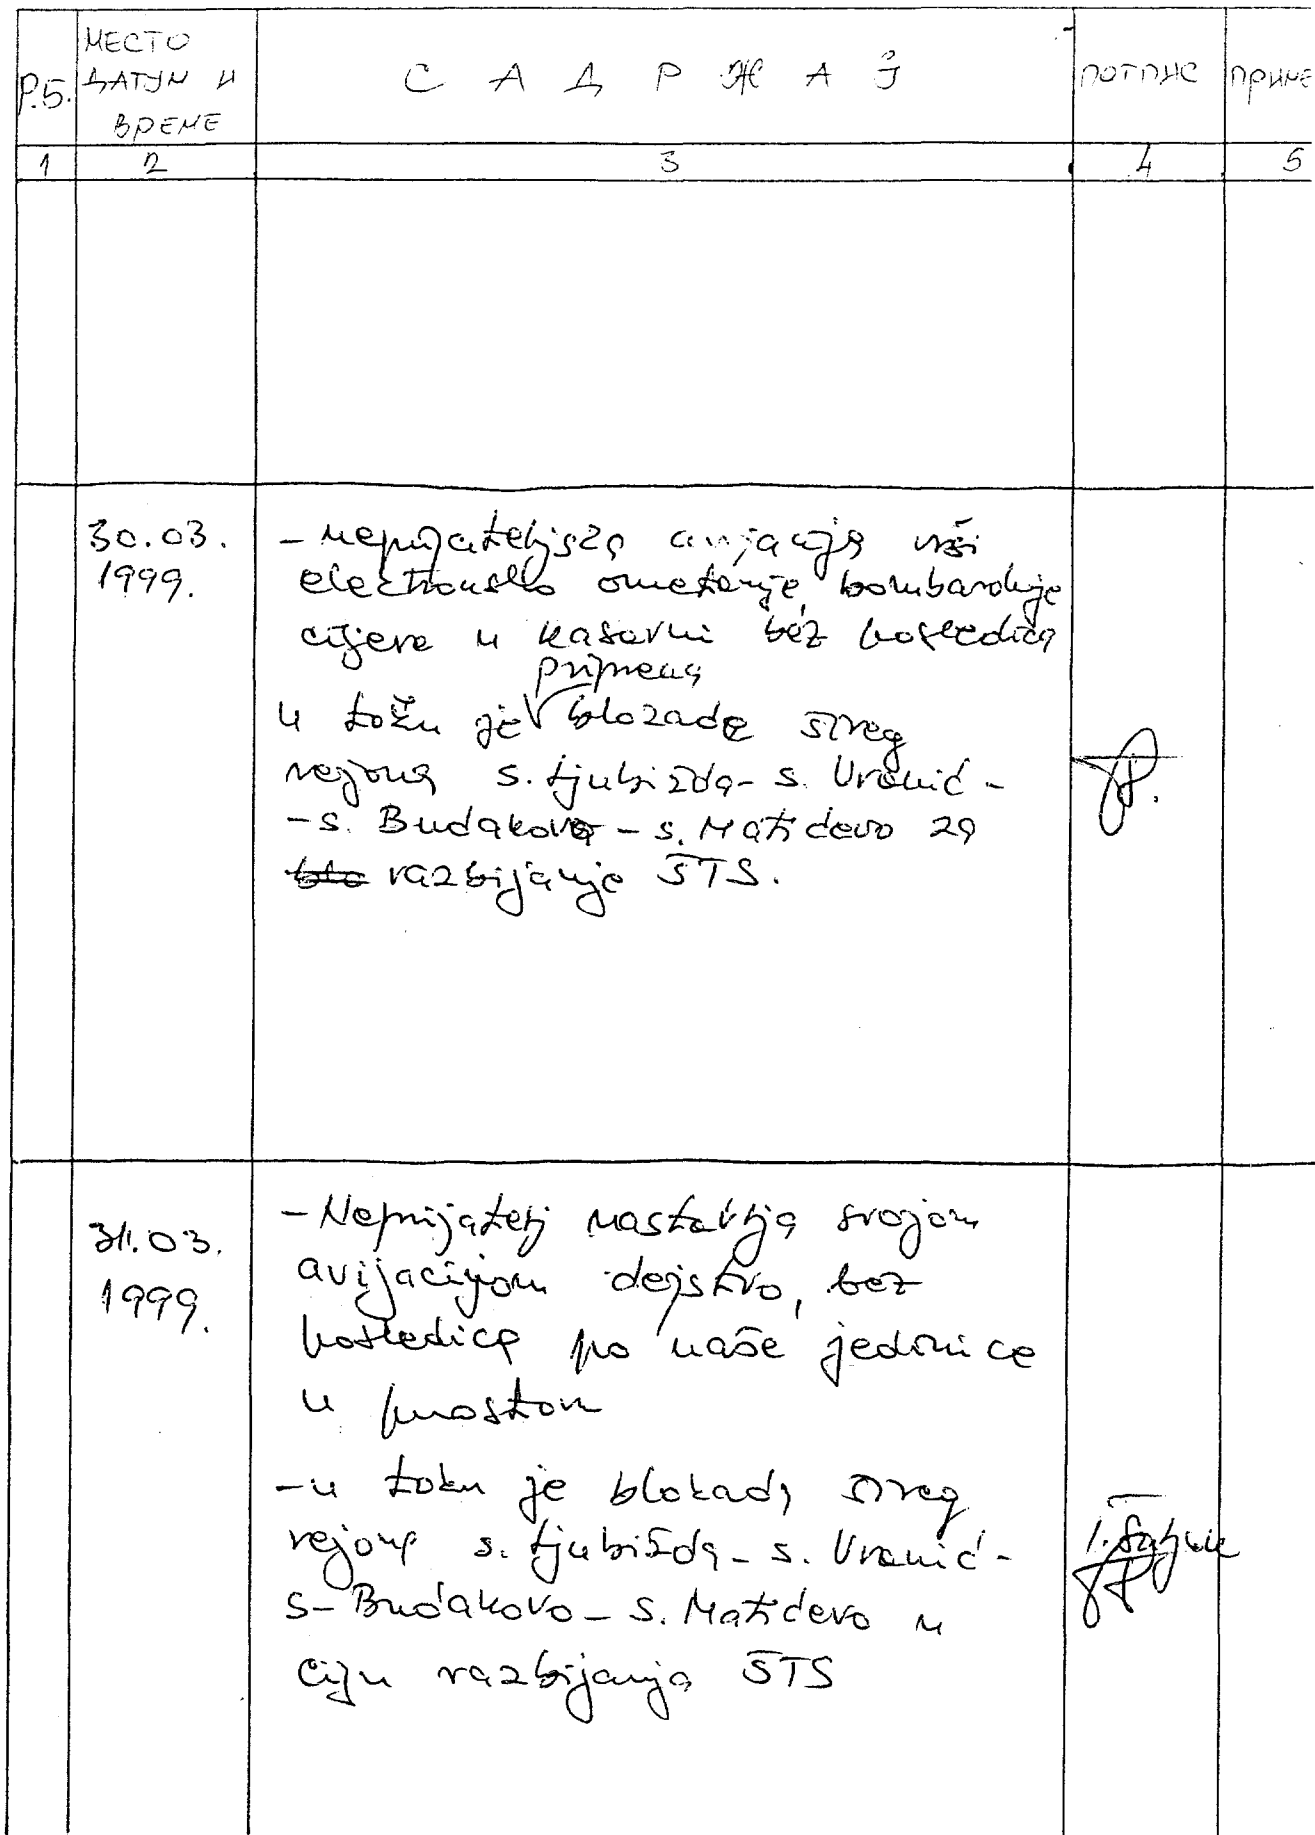 Р.Б.
МЕСТО
ДАТУМ И
ВРЕМЕ
С А Д Р Ж А Ј
ПОТПИС
ПРИМЕ
1 2 3 4 5
30.03.
1999.
- neprijateljska avijacija vrši
elektronsko ometanje, bombarduje
ciljeve u kasarni bez posledica
priprema
u toku je blokade šireg
rejona s. Ljubižda - s. Vranić -
- s. Budakovo - s. Matičevo za
blo razbijanje ŠTS.
31.03.
1999.
- Neprijatelj nastavlja svojom
avijacijom dejstvo, bez
posledica po naše jedinice
u prostoru
- u toku je blokada šireg
rejona s. Ljubižda - s. Vranić -
s - Budakovo - s. Matičevo u
cilju razbijanja ŠTS